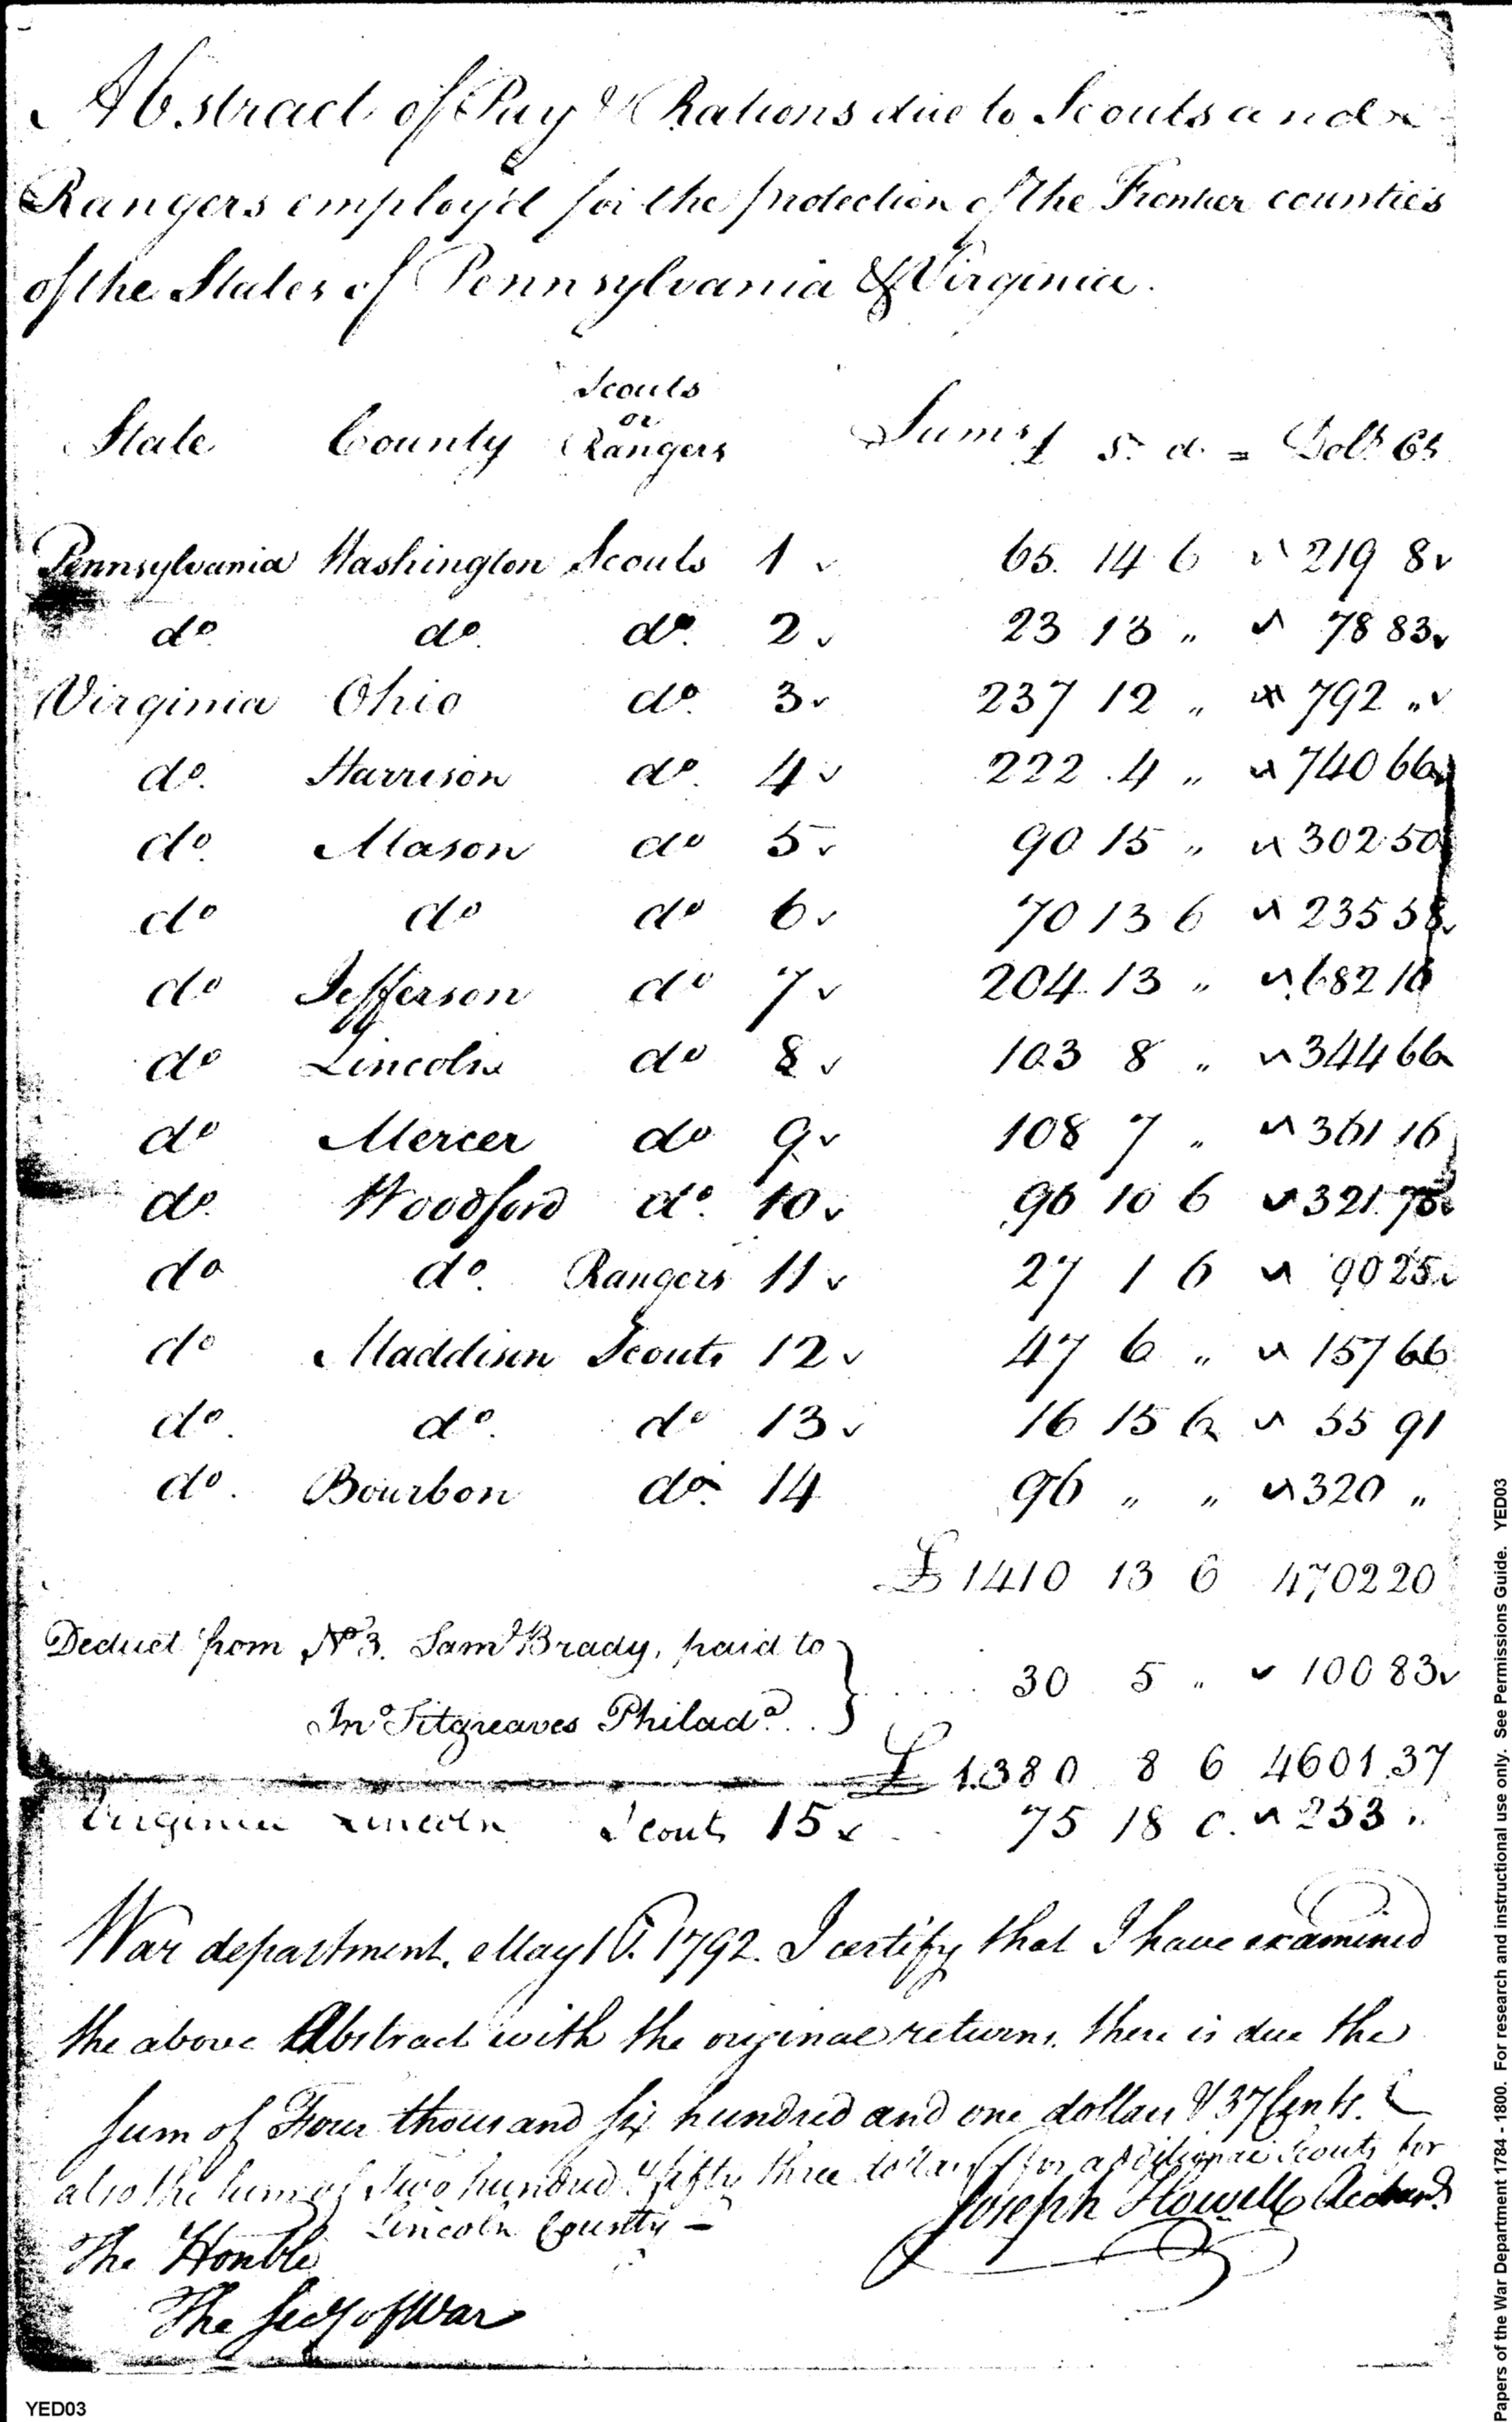 Abstract of Pay & Rations due to Scouts and
Rangers employ'd for the protection of the Frontier counties
of the States of Pennsylvania & Virginia.
State County Scouts or Rangers Sums £ s. d. = Doll.s Cts
Pennsylvania Washington Scouts 1 65. 14 6 219 8
do. do. do. 2 23 13 " 78 83
Virginia Ohio do. 3 237 12 " 792 "
do. Harrison do. 4 222 .4 " 740 66
do. Mason do 5 90 15 " 302 50
do do do 6 70 13 6 235 58
do Jefferson do 7 204 13 " 682 16
do Lincoln do 8 103 8 " 344 66
do Mercer do 9 108 7 " 361 16
do. Woodford do. 10 96 10 6 321.75
do do. Rangers 11 27 1 6 90 25
do Maddison Scouts 12 47 6 " 157 66
do. do. do 13 16 15 6 55 91
do. Bourbon do. 14 96 " " 320 "
£ 1410 13 6 4702 20
Deduct from No 3. Saml Brady, paid to
Jno Fitgreaves Philada. . } . . . . 30 5 " 100 83
£ 1.380 8 6 4601.37
Virginia Lincoln Scouts 15 . . 75 18 0. 253 "
War department. May 1792. I certify that I have examined
the above Abstract with the original returns. there is due the
sum of Four thousand six hundred and one dollars & 37 Cents.
also the sum of two hundred & fifty three dollars for additional Scouts for
Lincoln County –
Joseph Howell
The Honble
The Secy of War
YED03
Papers of the War Department 1784 - 1800. For research and instructional use only. See Permissions Guide. YED03